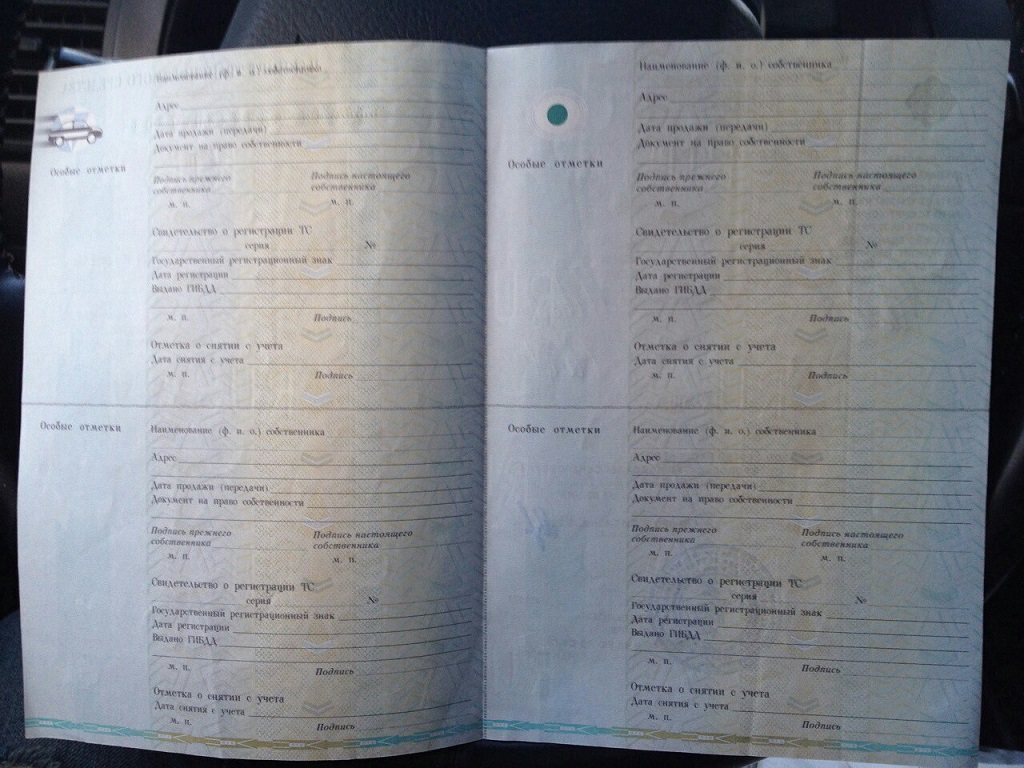 Наименование (ф. и. о.) собственника
Адрес
Дата продажи (передачи)
Документ на право собственности
Особые отметки
Подпись прежнего собственника
Подпись настоящего собственника
м. п.
м. п.
Свидетельство о регистрации ТС
серия №
Государственный регистрационный знак
Дата регистрации
Выдано ГИБДД
м. п. Подпись
Отметка о снятии с учета
Дата снятия с учета
м. п. Подпись
Наименование (ф. и. о.) собственника
Адрес
Дата продажи (передачи)
Документ на право собственности
Особые отметки
Подпись прежнего собственника
Подпись настоящего собственника
м. п.
м. п.
Свидетельство о регистрации ТС
серия №
Государственный регистрационный знак
Дата регистрации
Выдано ГИБДД
м. п. Подпись
Отметка о снятии с учета
Дата снятия с учета
м. п. Подпись
Особые отметки
Наименование (ф. и. о.) собственника
Адрес
Дата продажи (передачи)
Документ на право собственности
Подпись прежнего собственника
Подпись настоящего собственника
м. п.
м. п.
Свидетельство о регистрации ТС
серия №
Государственный регистрационный знак
Дата регистрации
Выдано ГИБДД
м. п. Подпись
Отметка о снятии с учета
Дата снятия с учета
м. п. Подпись
Особые отметки
Наименование (ф. и. о.) собственника
Адрес
Дата продажи (передачи)
Документ на право собственности
Подпись прежнего собственника
Подпись настоящего собственника
м. п.
м. п.
Свидетельство о регистрации ТС
серия №
Государственный регистрационный знак
Дата регистрации
Выдано ГИБДД
м. п. Подпись
Отметка о снятии с учета
Дата снятия с учета
м. п. Подпись